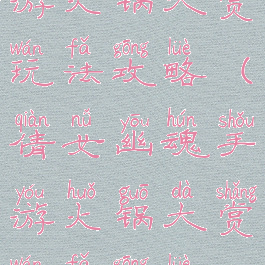 游火锅大赏
wán fǎ gōng lüè
玩法攻略（
qiàn nǚ yōu hún shǒu
倩女幽魂手
yóu huǒ guō dà shǎng
游火锅大赏
wán fǎ gōng lüè